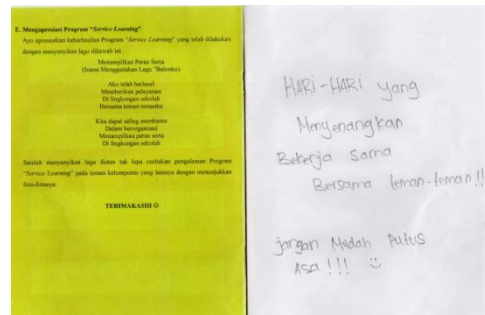 E. Mengapresiasi Program "Service Learning"
Ayo apresiasikan keberhasilan Program "Service Learning" yang telah dilakukan
dengan menyanyikan lagu dibawah ini :
Menampilkan Peran Serta
(Irama Menggunakan Lagu "Balonku)
Aku telah berhasil
Memberikan pelayanan
Di lingkungan sekolah
Bersama teman-temanku
Kita dapat saling membantu
Dalam berorganisasi
Menampilkan peran serta
Di lingkungan sekolah
Setelah menyanyikan lagu diatas tak lupa ceritakan pengalaman Program
"Service Learning" pada teman kelompokmu yang lainnya dengan menunjukkan
foto-fotonya.
TERIMAKASIH ☺
HARi-HARi yang
Menyenangkan
Bekerja Sama
Bersama teman-teman!!
jangan Mudah Putus
Asa !!! ☺